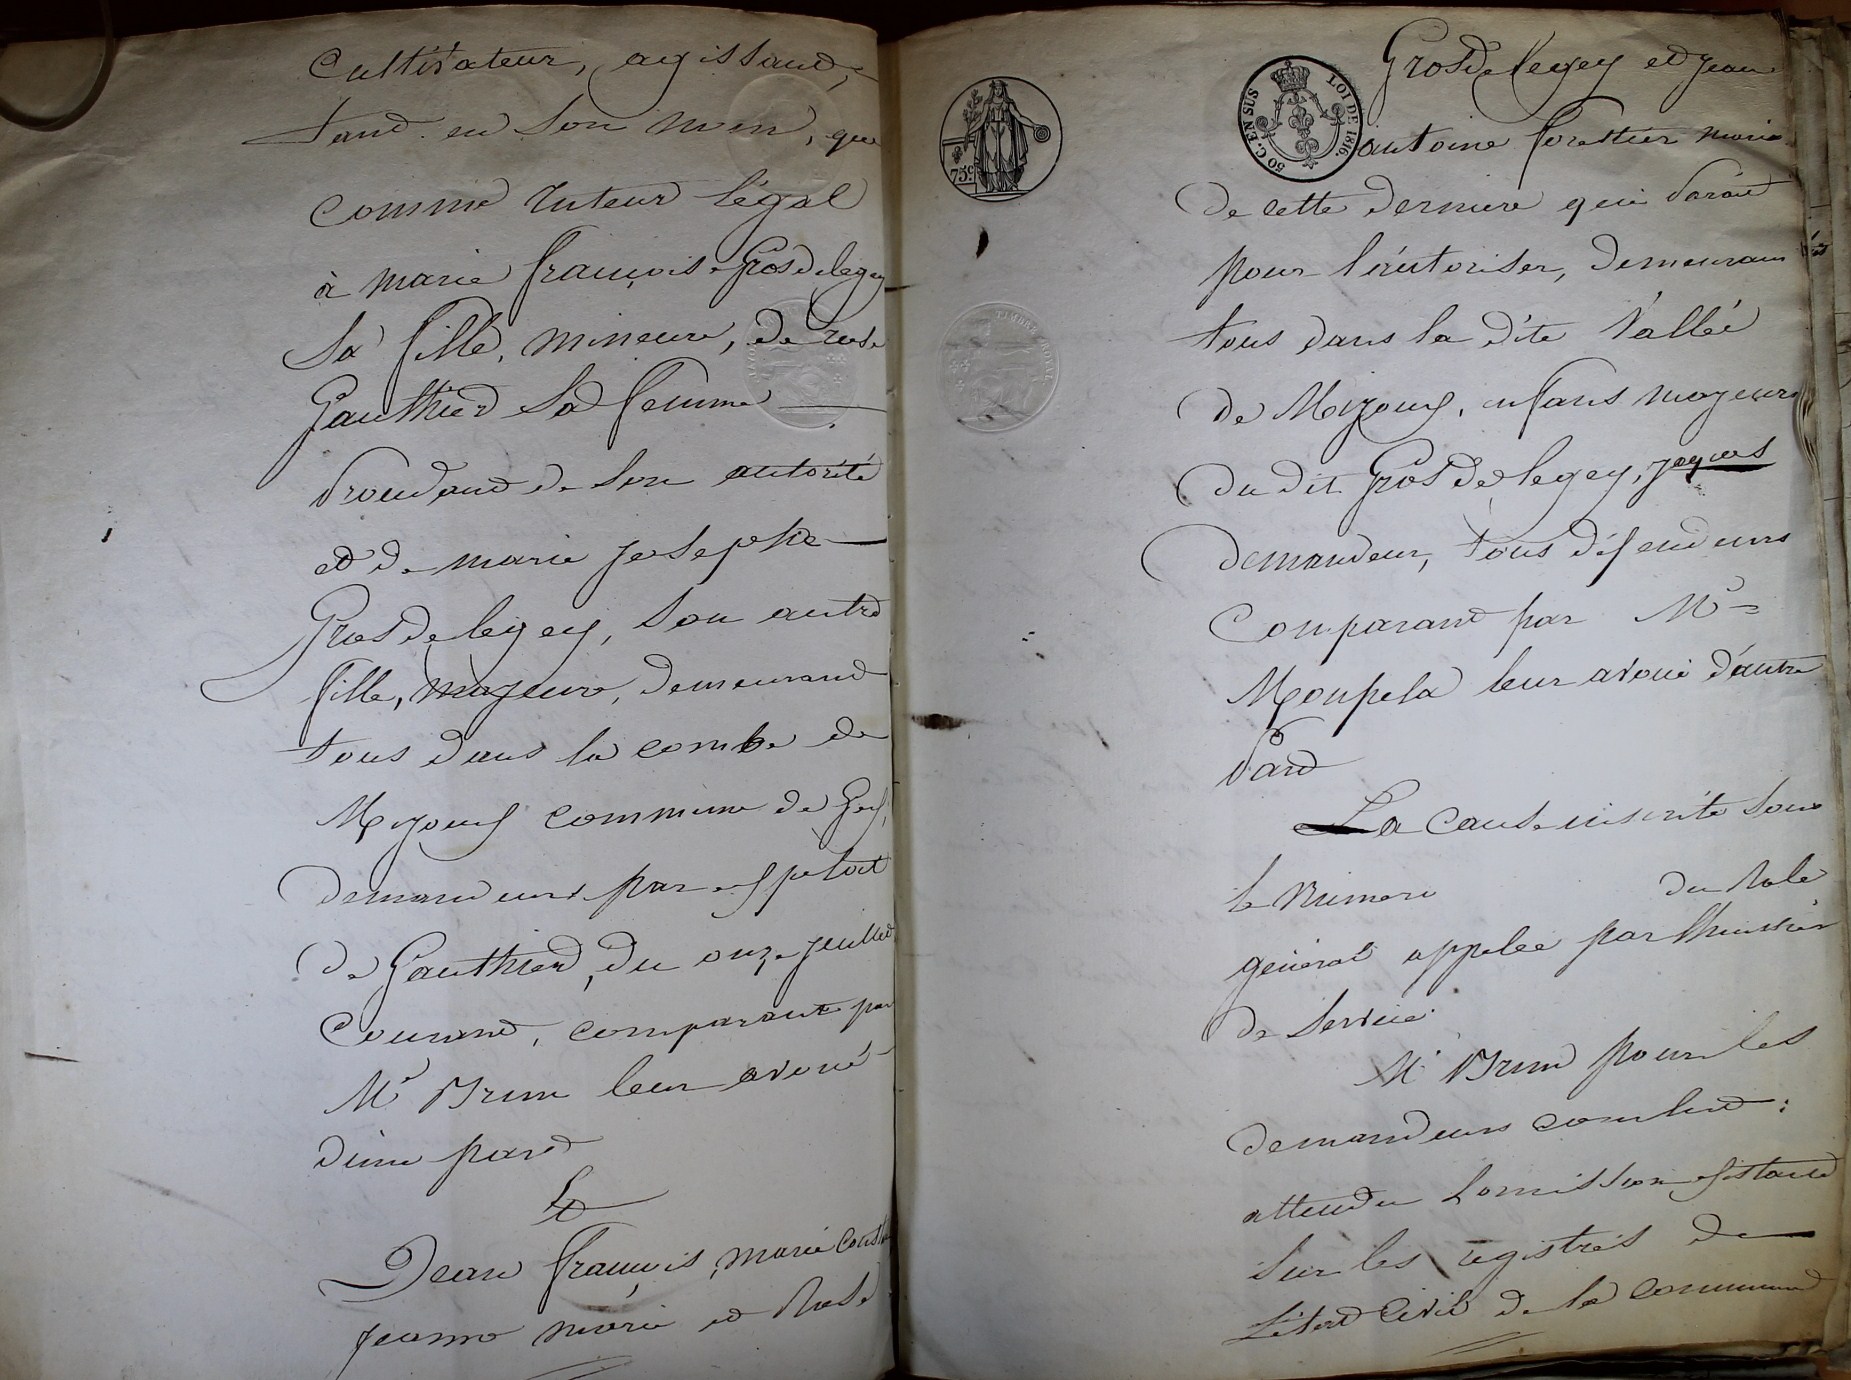 Cultivateur, agissant,
tant en son nom, que
comme tuteur légal
à marie françoise Grosdelegey
sa fille, mineure, de rose
Gauthier sa femme
procédant de son autorité
et de marie josephe
Grosdelegey, son autre
fille, majeure, demeurant
tous dans la combe de
Mijoux commune de Gex,
demandeurs par exploit
de Gauthier, du onze juillet
Courant, comparant par
Me Brun leur avoué
d'une part
Et
Jean françois, marie
jeanne marie et Rose
75c.
50 C. EN SUS LOI DE 1816.
TIMBRE ROYAL
Grosdelegey et jean
antoine forestier mari
de cette derniere qui parait
pour l'autoriser, demeurant
tous dans la dite vallée
de Mijoux, enfans majeurs
du dit Grosdelegey, jaques
demandeur, tous défendeurs
Comparant par Me
Monpela leur avoué d'autre
part
La cause inscrite sous
le Numero du Role
général appelée par l'huissier
de service
Me Brun pour les
demandeurs conclud :
attendu l'omission existant
sur les registres de
L'état civil de la commune